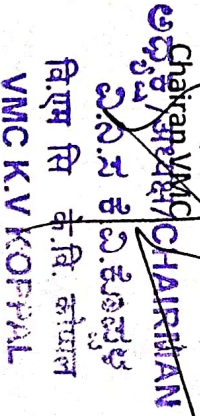 Chairan VMC
ಅಧ್ಯಕ್ಷರು/अध्यक्ष/CHAIRMAN
ವಿ.ಎಂ.ಸಿ ಕೆ.ವಿ.ಕೊಪ್ಪಳ
वि.एम सि के.वि. कोप्पल
VMC K.V KOPPAL